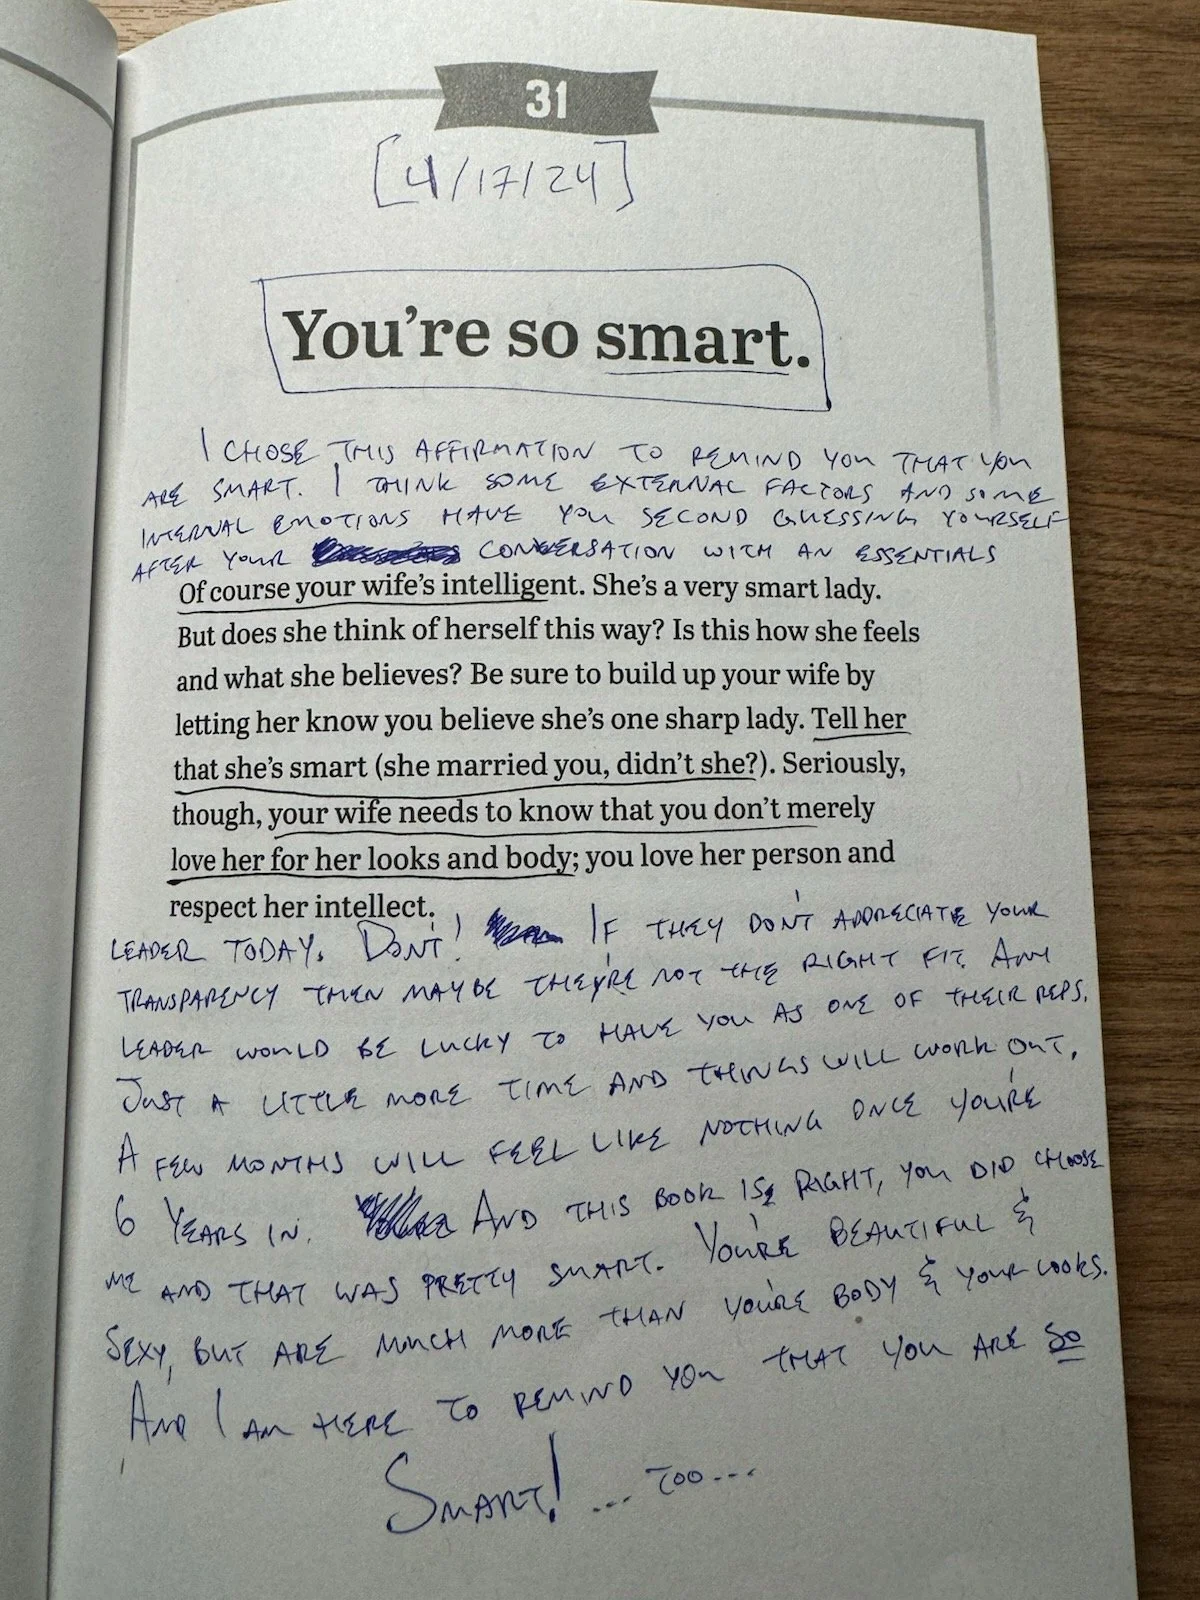 31
[4/17/24]
You're so smart.
I CHOSE THIS AFFIRMATION TO REMIND YOU THAT YOU
ARE SMART. I THINK SOME EXTERNAL FACTORS AND SOME
INTERNAL EMOTIONS HAVE YOU SECOND GUESSING YOURSELF
AFTER YOUR CONVERSATION WITH AN ESSENTIALS
Of course your wife's intelligent. She's a very smart lady.
But does she think of herself this way? Is this how she feels
and what she believes? Be sure to build up your wife by
letting her know you believe she's one sharp lady. Tell her
that she's smart (she married you, didn't she?). Seriously,
though, your wife needs to know that you don't merely
love her for her looks and body; you love her person and
respect her intellect.
LEADER TODAY. DON'T! IF THEY DON'T APPRECIATE YOUR
TRANSPARENCY THEN MAYBE THEY'RE NOT THE RIGHT FIT. ANY
LEADER WOULD BE LUCKY TO HAVE YOU AS ONE OF THEIR REPS.
JUST A LITTLE MORE TIME AND THINGS WILL WORK OUT.
A FEW MONTHS WILL FEEL LIKE NOTHING ONCE YOU'RE
6 YEARS IN. AND THIS BOOK IS RIGHT, YOU DID CHOOSE
ME AND THAT WAS PRETTY SMART. YOU'RE BEAUTIFUL &
SEXY, BUT ARE MUCH MORE THAN YOU'RE BODY & YOUR LOOKS.
AND I AM HERE TO REMIND YOU THAT YOU ARE SO
SMART! ... TOO...